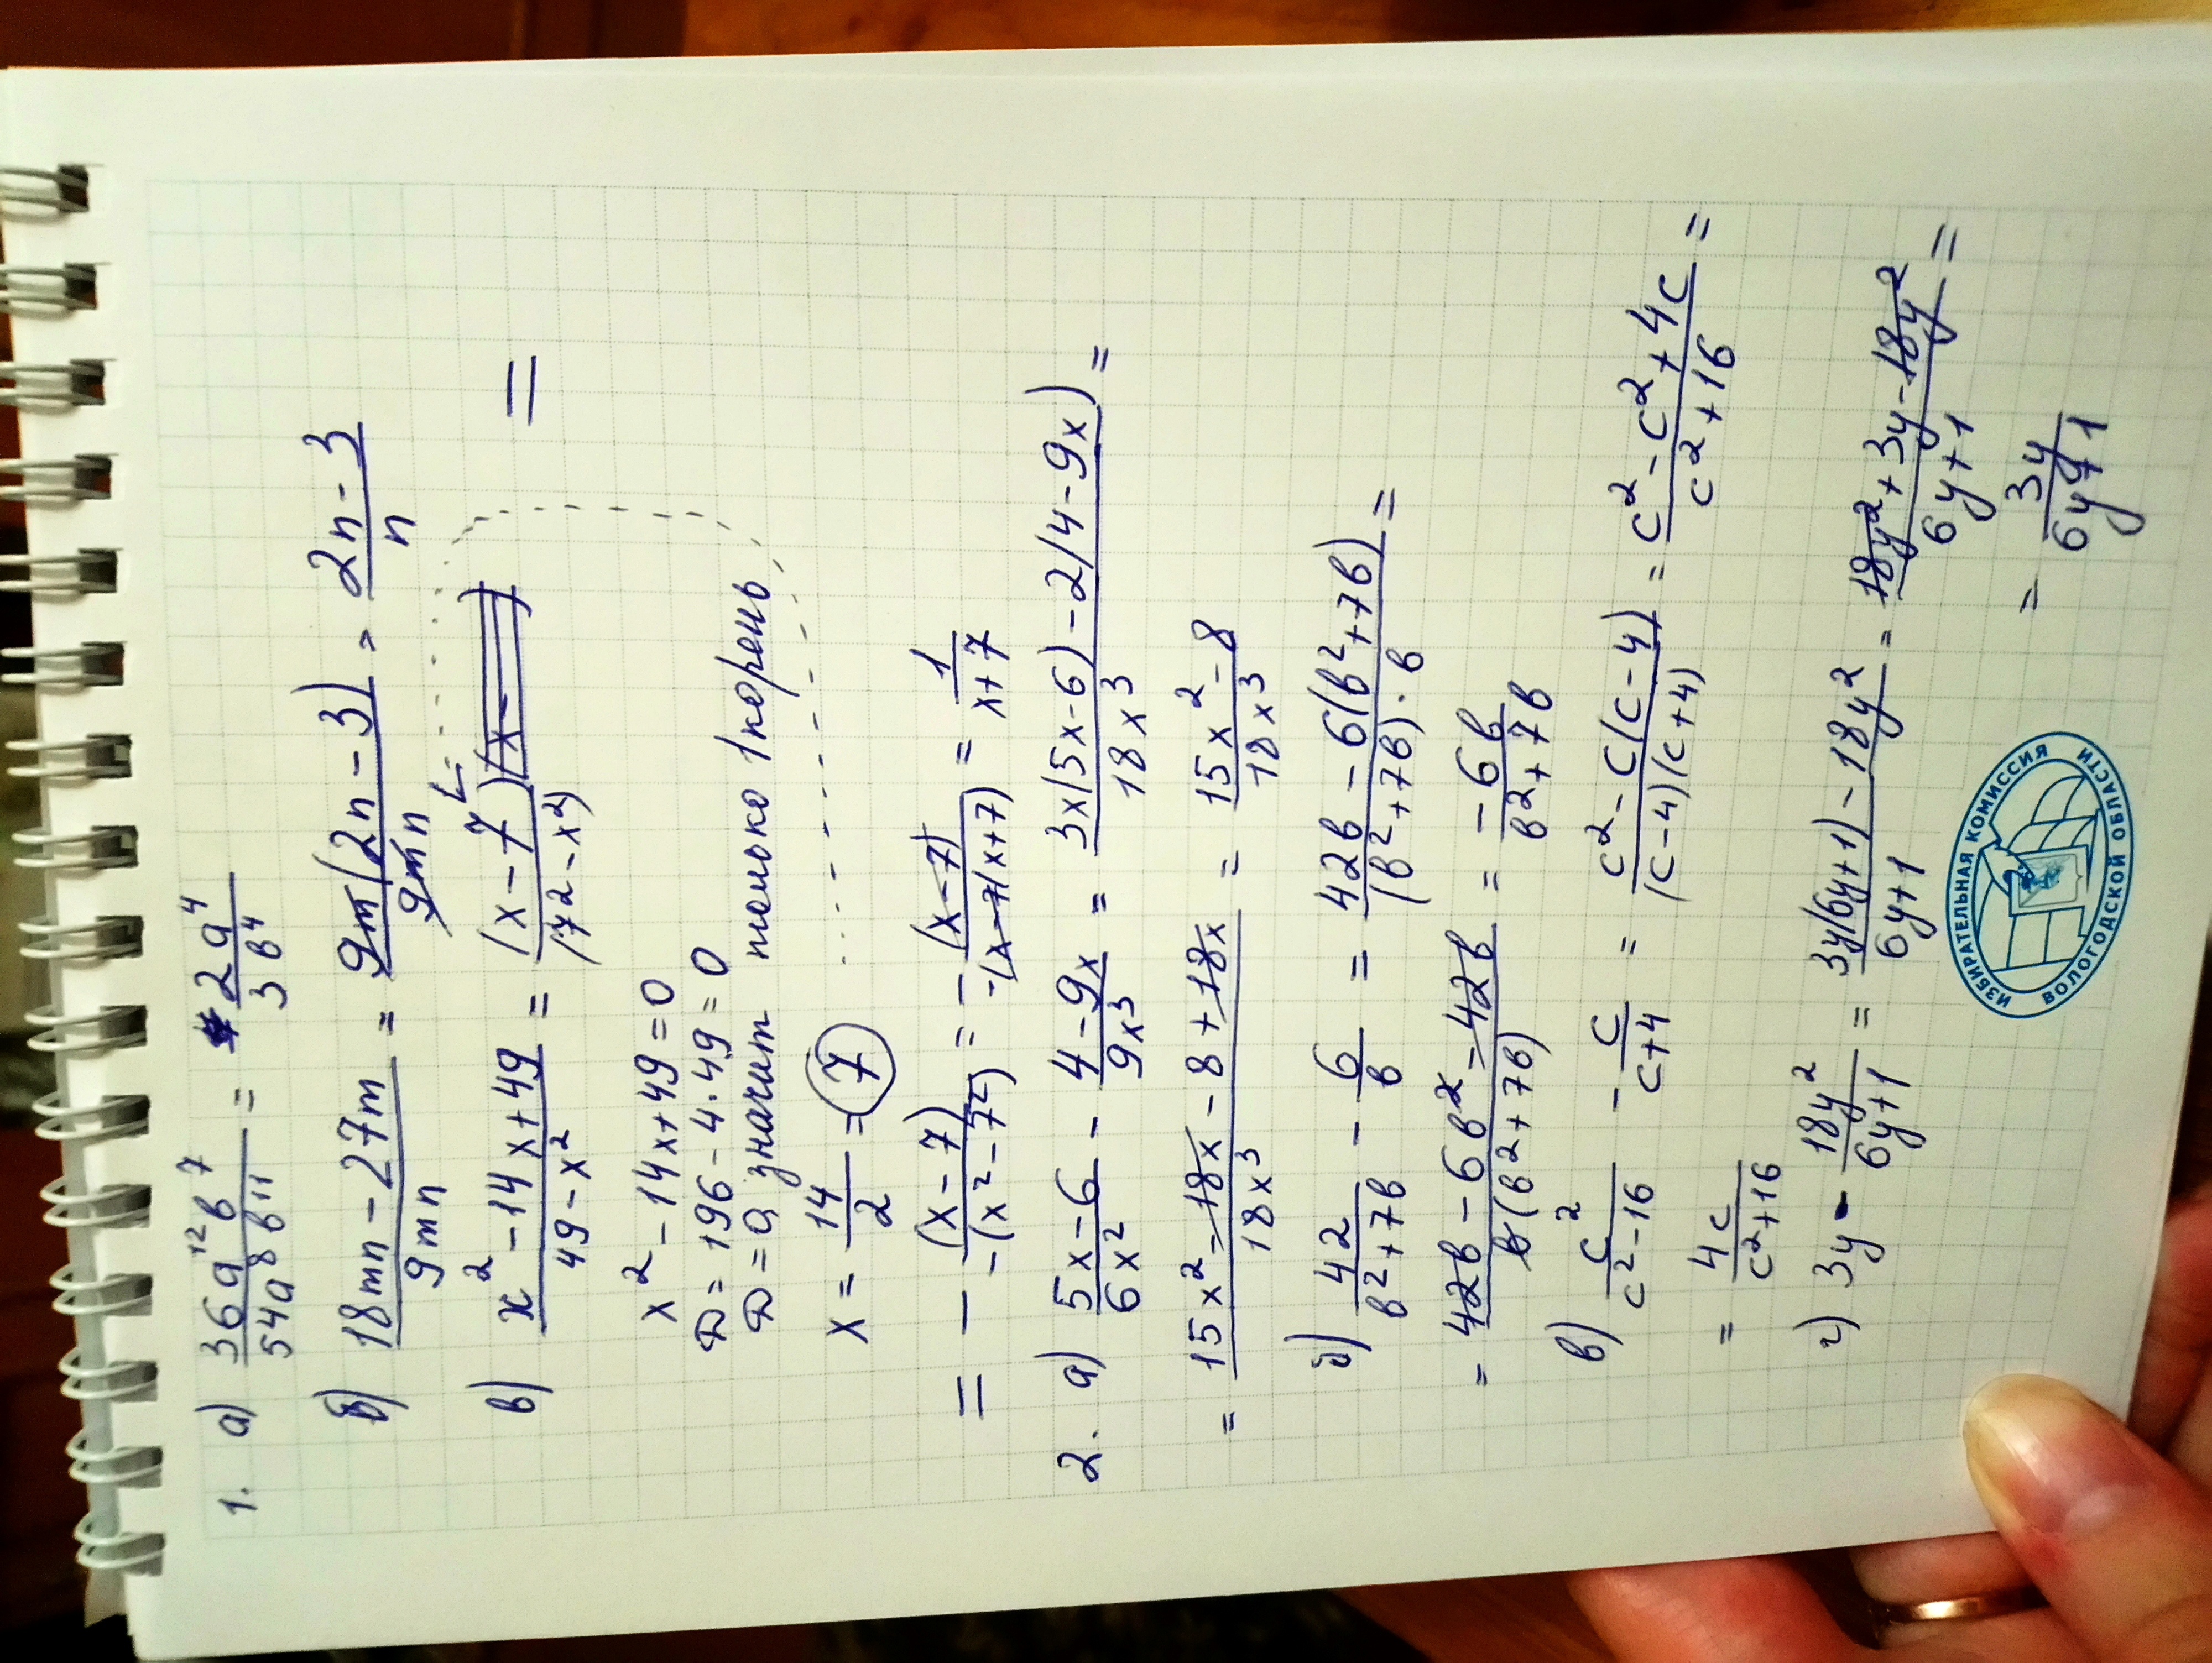 1. а) 36a¹²b⁷/54a⁸b¹¹ = 2a⁴/3b⁴
б) 18mn - 27m/9mn = 9m(2n - 3)/9mn = 2n - 3/n
в) x² - 14x + 49/49 - x² = (x - 7)(x -/(7² - x²) =
x² - 14x + 49 = 0
D = 196 - 4·49 = 0
D = 0, значит только 1 корень
x = 14/2 = 7
= - (x - 7)/-(x² - 7²) = - (x - 7)/-(x - 7)(x + 7) = 1/x + 7
2. а) 5x - 6/6x² - 4 - 9x/9x³ = 3x(5x - 6) - 2(4 - 9x)/18x³ =
= 15x² - 18x - 8 + 18x/18x³ = 15x² - 8/18x³
б) 42/b² + 7b - 6/b = 42b - 6(b² + 7b)/(b² + 7b)·b =
= 42b - 6b² - 42b/b(b² + 7b) = - 6b/b² + 7b
в) c²/c² - 16 - c/c + 4 = c² - c(c - 4)/(c - 4)(c + 4) = c² - c² + 4c/c² + 16 =
= 4c/c² + 16
г) 3y - 18y²/6y + 1 = 3y(6y + 1) - 18y²/6y + 1 = 18y² + 3y - 18y²/6y + 1 =
= 3y/6y + 1
ИЗБИРАТЕЛЬНАЯ КОМИССИЯ
ВОЛОГОДСКОЙ ОБЛАСТИ